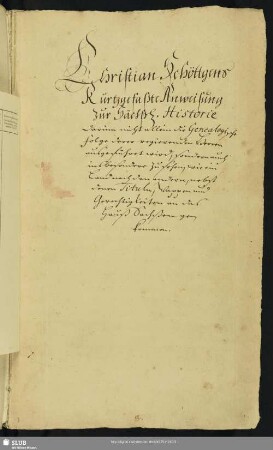 Christian Schöttgens
Kurtzgefaßte Anweisung
Zur Sächß. Historie
Darinn nicht allein die Genealogische
folge derer regierenden Herren
ausgeführet wird, sondern auch
ins besondere zu sehen, wie ein
Land nach dem andern, nebst
denen Tituln, Wappen und
Gerechtigkeiten an das
Hauß Sachßen gekommen.
SLUB